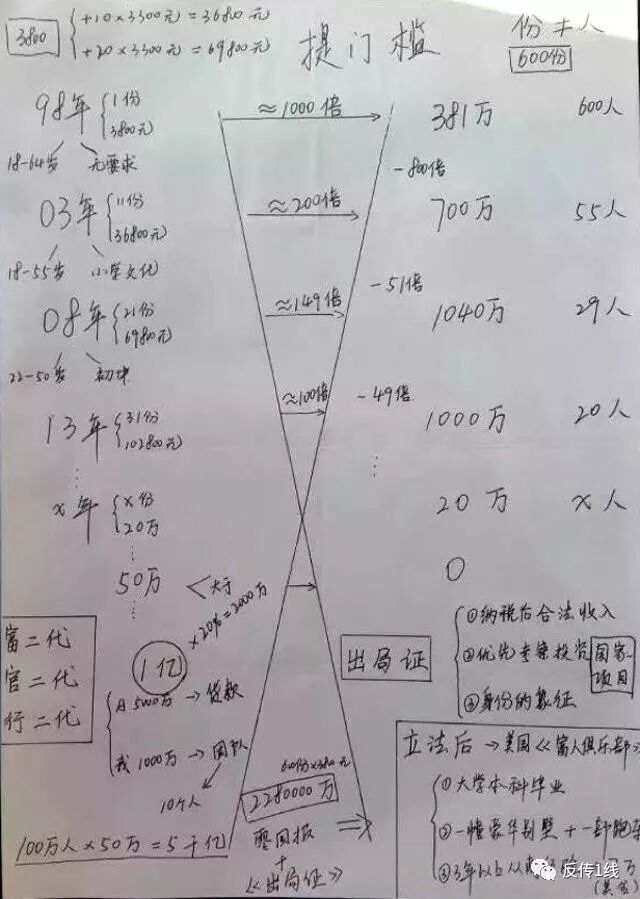 3800 { +10×3300元=36800元
+20×3300元=69800元
提门槛
份≠人
600份
98年 { 1份
3800元
≈1000倍
381万
600人
18-64岁 无要求
-800倍
03年 { 11份
36800元
≈200倍
700万
55人
18-55岁 小学文化
-51倍
08年 { 21份
69800元
≈149倍
1040万
29人
22-50岁 初中
-49倍
≈100倍
13年 { 31份
102800元
1000万
20人
x年 { x份
20万
20万
x人
50万 < 大于
0
×20%=2000万
1亿
富二代
官二代
行二代
出局证
①纳税后合法收入
②优先考察投资 国家项目
③身份的象征
5000万→贷款
我1000万→团队
10个人
600份×3800元
2280000万
100万人×50万=5千亿
零回报
+
《出局证》
立法后→美国《富人俱乐部》
①大学本科毕业
②一幢豪华别墅+一部跑车
③3年以上从
反传1线